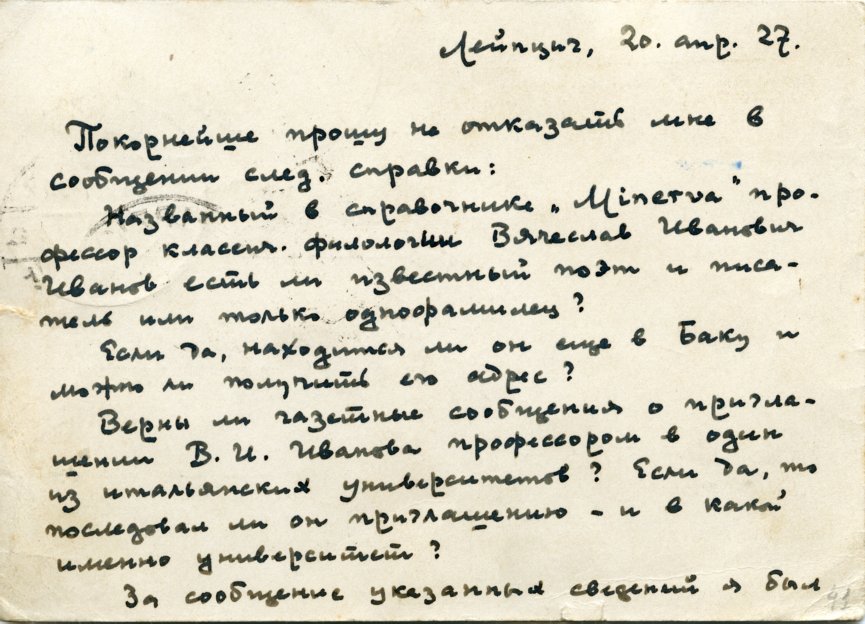 Лейпциг, 20. апр. 27.
Покорнейше прошу не отказать мне в
сообщении след. справки:
Названный в справочнике „Minerva" про-
фессор классич. филологии Вячеслав Иванович
Иванов есть ли известный поэт и писа-
тель или только однофамилец?
Если да, находится ли он еще в Баку и
можно ли получить его адрес?
Верны ли газетные сообщения о пригла-
шении В. И. Иванова профессором в один
из итальянских университетов? Если да, то
последовал ли он приглашению - и в какой
именно университет?
За сообщение указанных сведений я был